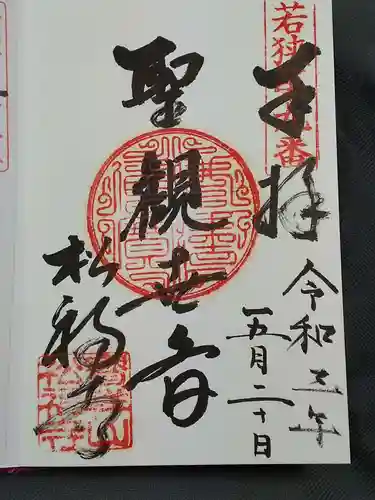 若狭
番
奉拝
令和三年
五月二十日
聖観世音
松福寺